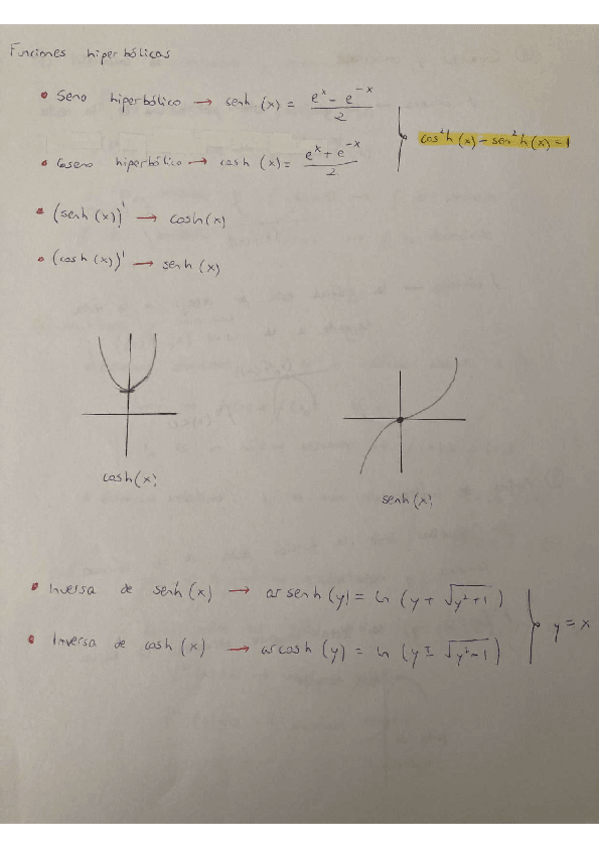 Funciones hiperbólicas
• Seno hiperbólico → senh (x) = (e^x - e^-x)/2
• Coseno hiperbólico → cosh (x) = (e^x + e^-x)/2
cos²h(x) - sen²h(x) = 1
• (senh(x))' → cosh(x)
• (cosh(x))' → senh(x)
cosh(x)
senh(x)
• Inversa de senh(x) → arsenh(y) = ln (y + √(y²+1))
• Inversa de cosh(x) → arcosh(y) = ln (y ± √(y²-1))
y = x